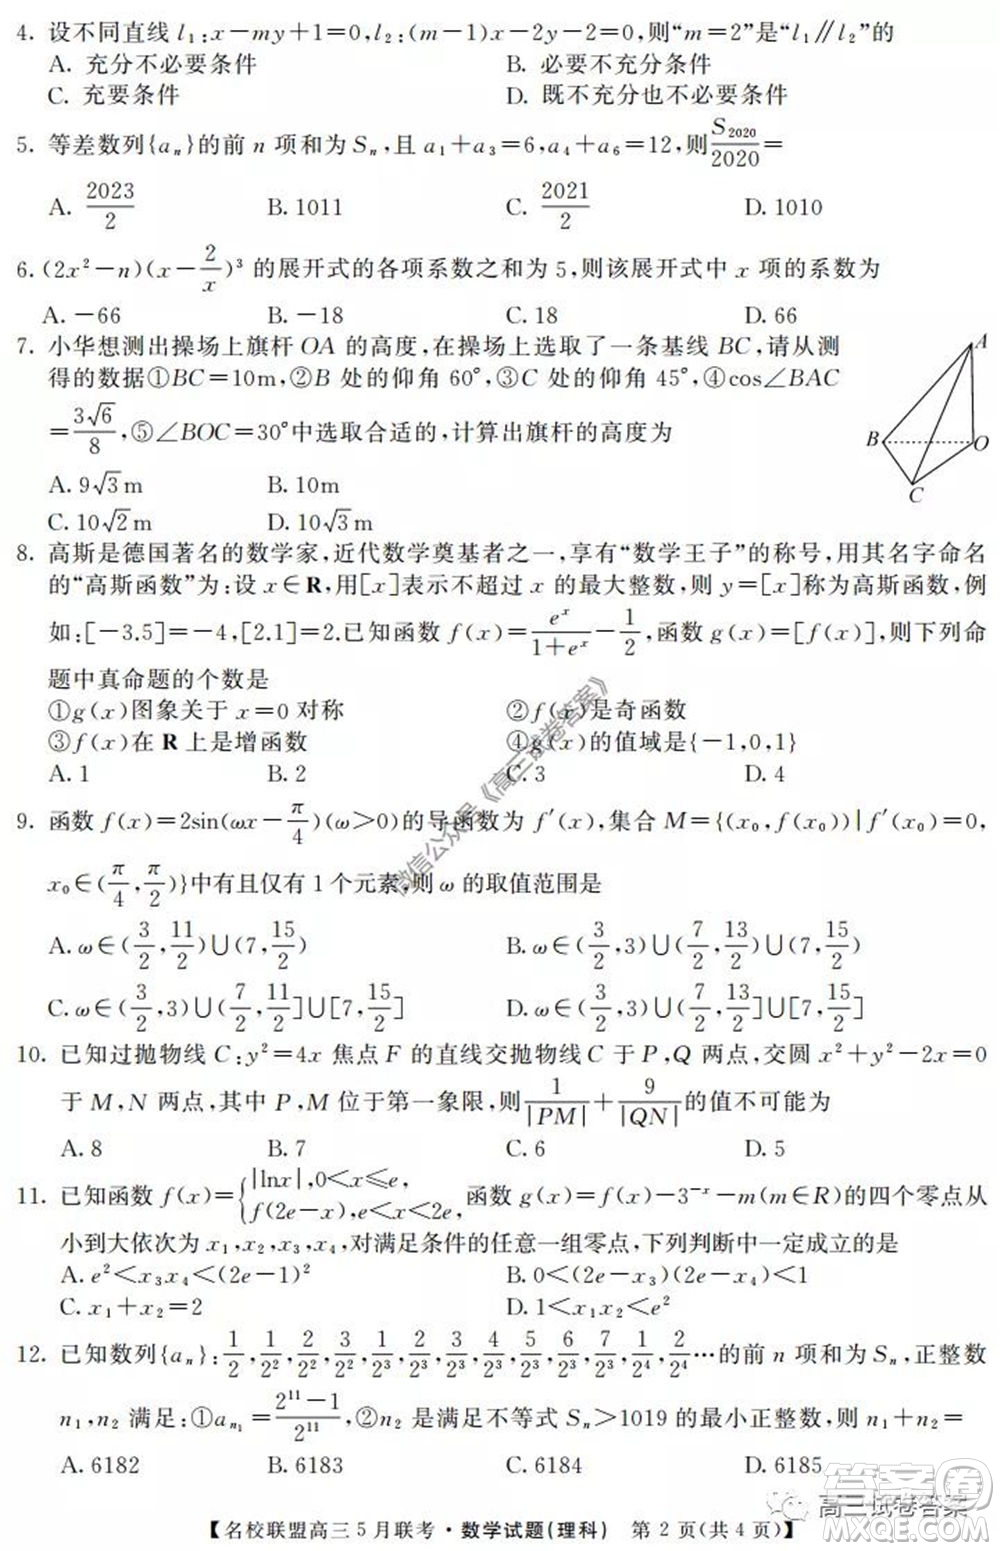 4. 设不同直线 l₁:x－my＋1＝0,l₂:(m－1)x－2y－2＝0,则“m＝2”是“l₁∥l₂”的
A. 充分不必要条件 B. 必要不充分条件
C. 充要条件 D. 既不充分也不必要条件
5. 等差数列{aₙ}的前 n 项和为 Sₙ,且 a₁＋a₃＝6,a₄＋a₆＝12,则 S₂₀₂₀/2020＝
A. 2023/2 B. 1011 C. 2021/2 D. 1010
6. (2x²－n)(x－2/x)³ 的展开式的各项系数之和为 5,则该展开式中 x 项的系数为
A. －66 B. －18 C. 18 D. 66
7. 小华想测出操场上旗杆 OA 的高度,在操场上选取了一条基线 BC,请从测
得的数据①BC＝10m,②B 处的仰角 60°,③C 处的仰角 45°,④cos∠BAC
＝3√6/8,⑤∠BOC＝30°中选取合适的,计算出旗杆的高度为
A. 9√3m B. 10m
C. 10√2m D. 10√3m
A
B
O
C
8. 高斯是德国著名的数学家,近代数学奠基者之一,享有“数学王子”的称号,用其名字命名
的“高斯函数”为:设 x∈R,用[x]表示不超过 x 的最大整数,则 y＝[x]称为高斯函数,例
如:[－3.5]＝－4,[2.1]＝2.已知函数 f(x)＝eˣ/(1＋eˣ)－1/2,函数 g(x)＝[f(x)],则下列命
题中真命题的个数是
①g(x)图象关于 x＝0 对称 ②f(x)是奇函数
③f(x)在 R 上是增函数 ④g(x)的值域是{－1,0,1}
A. 1 B. 2 C. 3 D. 4
9. 函数 f(x)＝2sin(ωx－π/4)(ω＞0)的导函数为 f′(x),集合 M＝{(x₀,f(x₀))|f′(x₀)＝0,
x₀∈(π/4,π/2)}中有且仅有 1 个元素,则 ω 的取值范围是
A. ω∈(3/2,11/2)∪(7,15/2) B. ω∈(3/2,3)∪(7/2,13/2)∪(7,15/2)
C. ω∈(3/2,3)∪(7/2,11/2]∪[7,15/2] D. ω∈(3/2,3)∪(7/2,13/2]∪[7,15/2]
10. 已知过抛物线 C:y²＝4x 焦点 F 的直线交抛物线 C 于 P,Q 两点,交圆 x²＋y²－2x＝0
于 M,N 两点,其中 P,M 位于第一象限,则 1/|PM|＋9/|QN| 的值不可能为
A. 8 B. 7 C. 6 D. 5
11. 已知函数 f(x)＝{|lnx|,0＜x≤e, f(2e－x),e＜x＜2e, 函数 g(x)＝f(x)－3⁻ˣ－m(m∈R)的四个零点从
小到大依次为 x₁,x₂,x₃,x₄,对满足条件的任意一组零点,下列判断中一定成立的是
A. e²＜x₃x₄＜(2e－1)² B. 0＜(2e－x₃)(2e－x₄)＜1
C. x₁＋x₂＝2 D. 1＜x₁x₂＜e²
12. 已知数列{aₙ}:1/2,1/2²,2/2²,3/2²,1/2³,2/2³,3/2³,4/2³,5/2³,6/2³,7/2³,1/2⁴,2/2⁴…的前 n 项和为 Sₙ,正整数
n₁,n₂ 满足:①aₙ₁＝(2¹¹－1)/2¹¹,②n₂ 是满足不等式 Sₙ＞1019 的最小正整数,则 n₁＋n₂＝
A. 6182 B. 6183 C. 6184 D. 6185
【名校联盟高三 5 月联考·数学试题(理科) 第 2 页(共 4 页)】
微信公众号《高三试卷答案》
高三试卷答案
答案圈
MXQE.COM